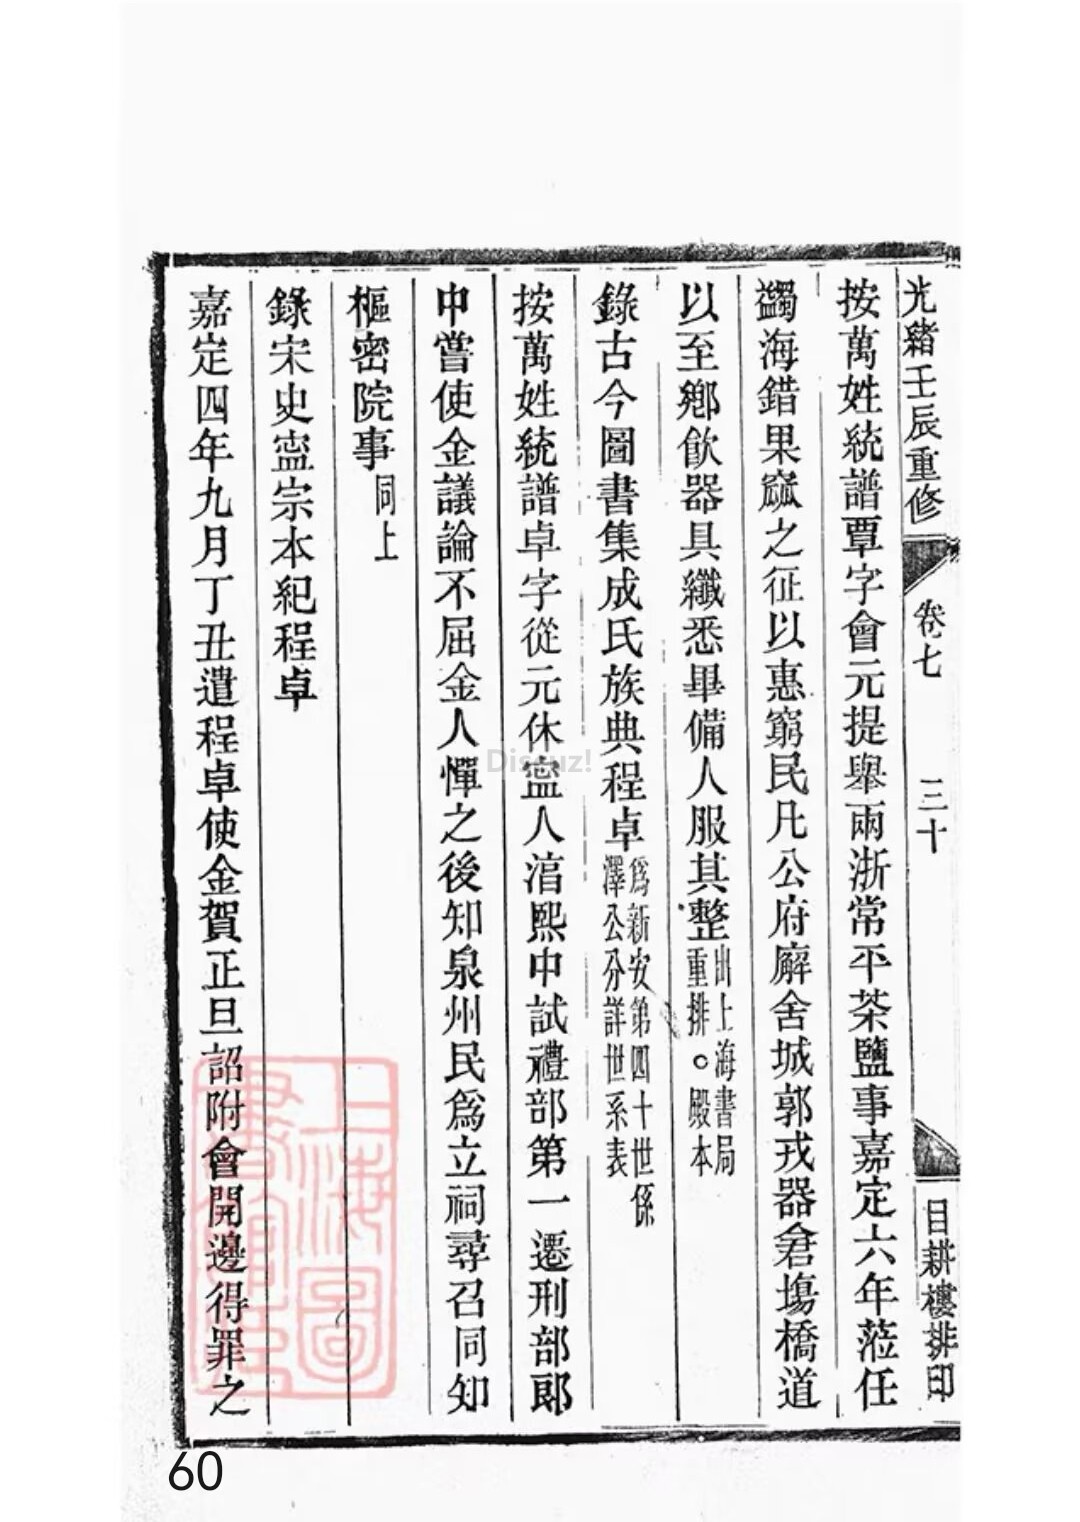 光緒壬辰重修 卷七 三十 目耕樓排印
按萬姓統譜覃字會元提舉兩浙常平茶鹽事嘉定六年蒞任
蠲海錯果窳之征以惠窮民凡公府廨舍城郭戎器倉塲橋道
以至鄉飲器具纖悉畢備人服其整出上海書局重排。殿本
錄古今圖書集成氏族典程卓爲新安第四十世係澤公分詳世系表
按萬姓統譜卓字從元休寍人湻熙中試禮部第一遷刑部郎
中嘗使金議論不屈金人憚之後知泉州民爲立祠尋召同知
樞密院事同上
錄宋史寍宗本紀程卓
嘉定四年九月丁丑遣程卓使金賀正旦詔附會開邊得罪之
上海圖書館藏
Discuz!
60